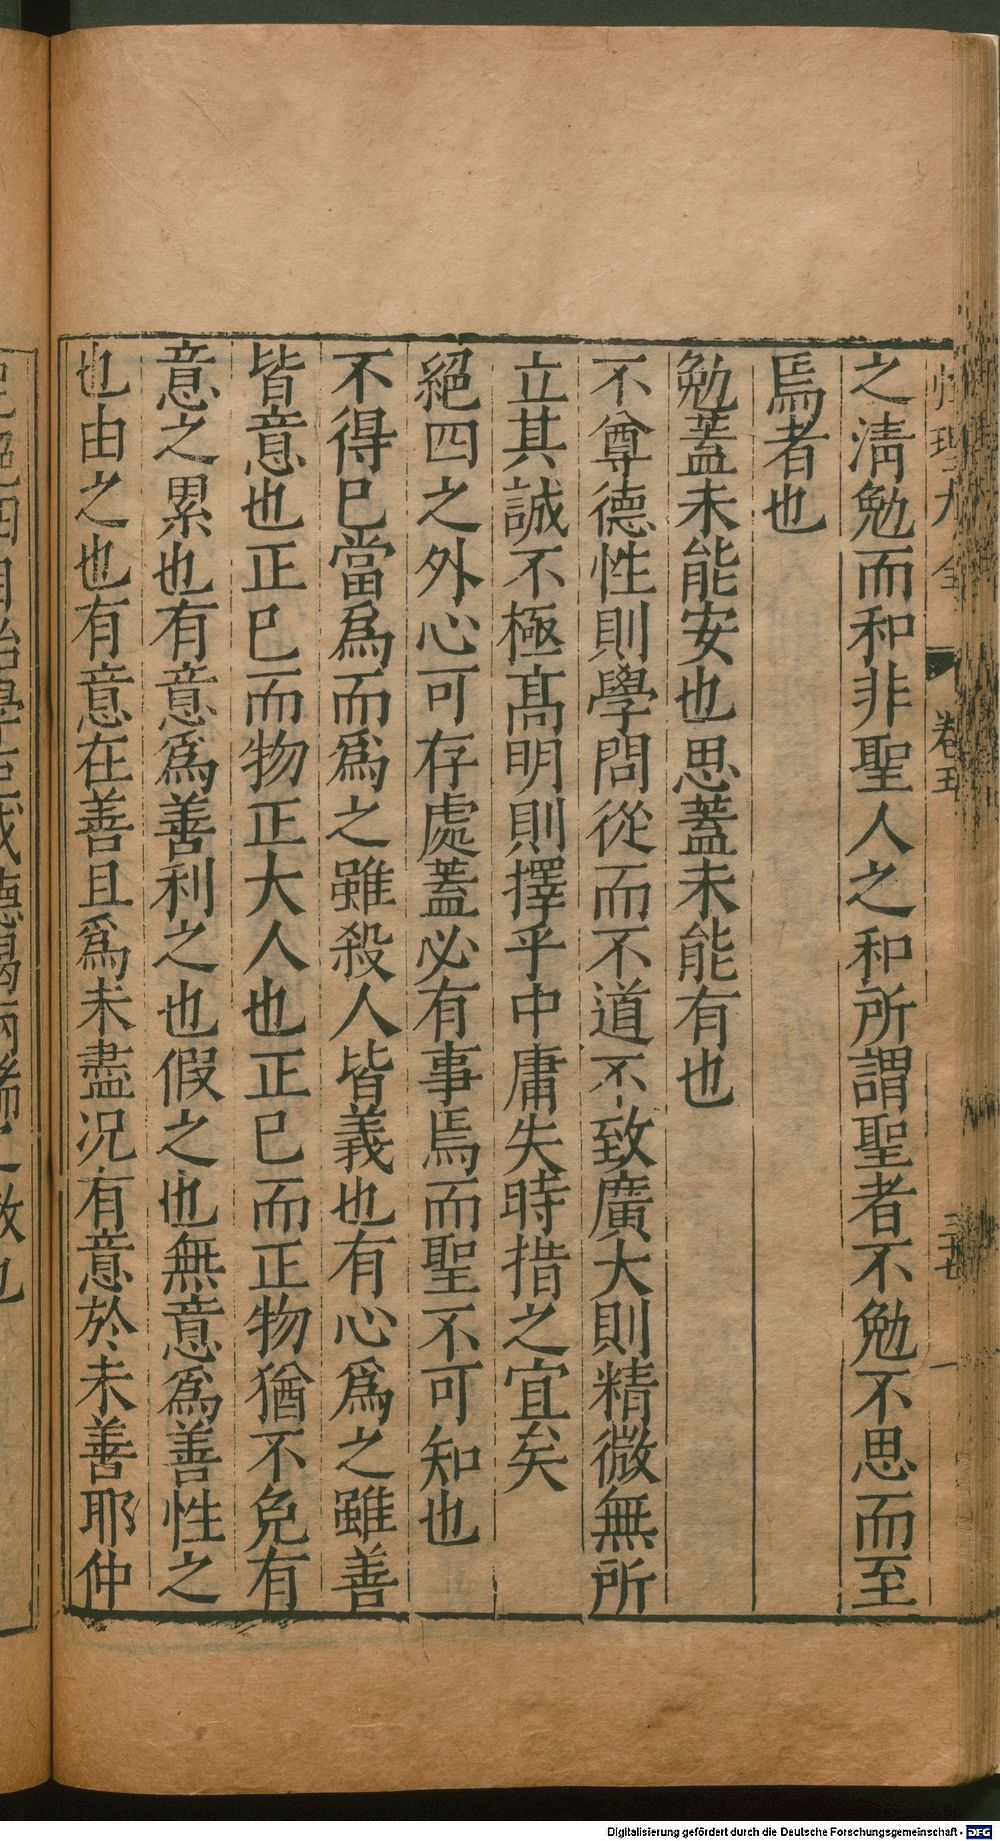 性理大全 卷五 三十七
之淸勉而和非聖人之和所謂聖者不勉不思而至
焉者也
勉蓋未能安也思蓋未能有也
不尊德性則學問從而不道不致廣大則精微無所
立其誠不極髙明則擇乎中庸失時措之宜矣
絕四之外心可存處蓋必有事焉而聖不可知也
不得已當爲而爲之雖殺人皆義也有心爲之雖善
皆意也正已而物正大人也正已而正物猶不免有
意之累也有意爲善利之也假之也無意爲善性之
也由之也有意在善且爲未盡况有意於未善耶仲
Digitalisierung gefördert durch die Deutsche Forschungsgemeinschaft - DFG